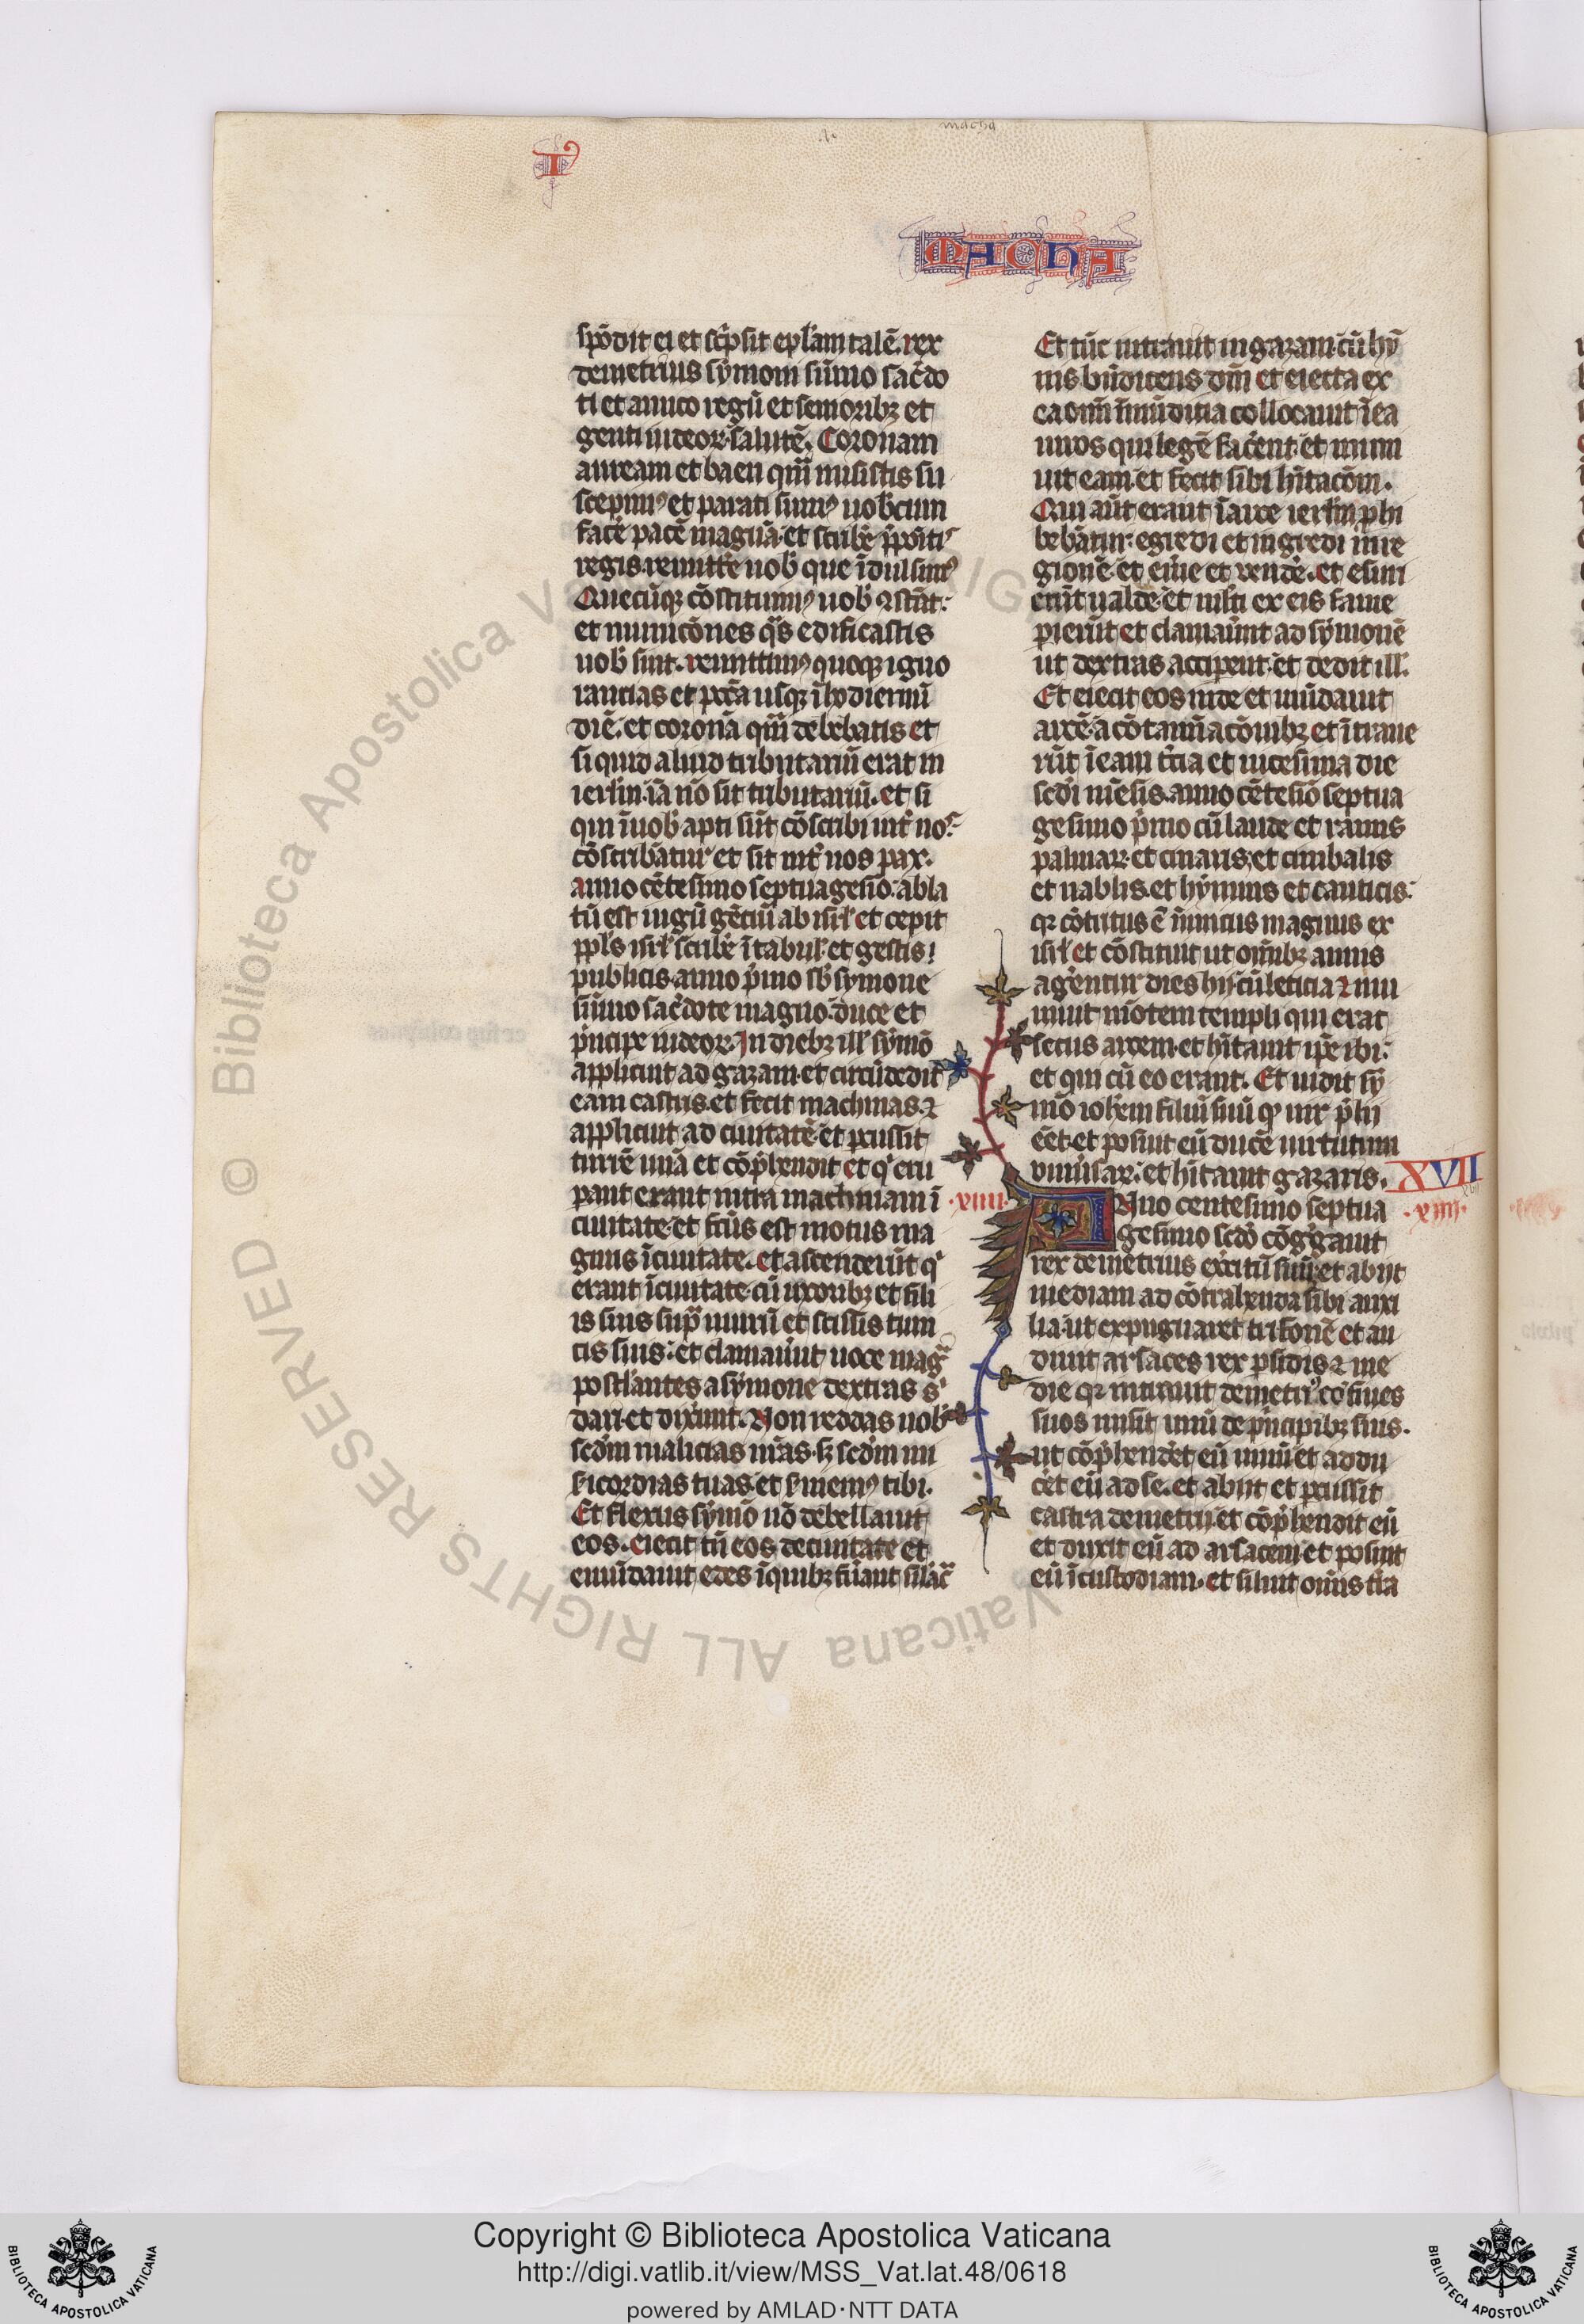 macha
I
MACHA
spōdit ei et sc̄psit epl̄am talē. rex
demetrius symoni sūmo sac̄do
ti et amico regū et senioribꝫ et
genti iudeoꝝ salutē. Coronam
auream et baen qm̄ misistis su
scepimꝰ et parati sumꝰ uob̄cum
facē pacē magnā. et scribē p̄positi
regis. remittē uob̄ que īdulsimꝰ
Quecūqꝫ cōstituimꝰ uob̄ ꝯstāt.
et municōnes qͣs edificastis
uob̄ sint. remittimꝰ quoqꝫ igno
rancias et pctā usqꝫ ī hodiernū
diē. et coronā qm̄ debebatis et
si quid aliud tributariū erat in
ierl̄m. iā nō sit tributariū. et si
qui ī uob̄ apti sūt cōscribi int̄ nos
cōscribātur et sit int̄ nos pax.
anno cētesimo septuagesīo. abla
tū est iugū gēciū ab isrl̄ et cepit
ppl̄s isrl̄ scribē ī tabul̄ et gestis
publicis. anno p̄mo sb̄ symone
sūmo sac̄dote magno. duce et
p̄ncipe iudeoꝝ. In diebꝫ ill̄ symō
applicuit ad gazam. et circūdedit
eam castris. et fecit machinas. ⁊
applicuit ad ciuitatē. et p̄cussit
turrē unā et cōp̄hendit et qͥ eru
pant erant intra machinam ī
ciuitate. et fc̄us est motus ma
gnus ī ciuitate. et ascenderūt qͥ
erant ī ciuitate. cū uxoribꝫ et fili
is suis sup̄ murū et scissis tuni
cis suis. et clamauūt uoce magͣ
postl̄antes a symone dextras sͥ
dari. et dixūnt. Non reddas nob̄
scd̄m malicias nr̄as. sꝫ scd̄m mi
sicordias tuas. et ẜuiemꝰ tibi.
Et flexus symō nō debellauit
eos. eiecit tn̄ eos de ciuitate et
emūdauit edes ī quibꝫ fūant silac̄
Et tūc intrauit in gazam. cū hy̅
nis bn̄dicens dm̄ et eiecta ex
ea om̄i īmūdicia collocauit ī ea
uiros qui legē fac̄ent. et muni
uit eam. et fecit sibi hītacōm.
Qui aūt erant ī arce ierl̄m p̄hi
bebātur. egredi et ingredi in re
gionē. et em̄e et vendē. et esuri
erūt ualde. et m̄lti ex eis fame
perierūt et clamauūt ad symonē
ut dextras accipent. et dedit ill̄.
Et eiecit eos inde et mūdauit
arcē. a cōtaminacōnibꝫ et ītraue
rūt ī eam t̄cia et uicesima die
scd̄i mēsis. anno cētesīo septua
gesimo p̄mo cū laude et ramis
palmaꝝ. et cinaris. et cimbalis
et nablis. et hymnis et canticis.
qꝛ cōtritus ē inimicus magnus ex
isrl̄ et cōstituit ut om̄ibꝫ annis
agēntur dies hij. cū leticia ⁊ mu
niuit mōtem templi qui erat
secus arcem. et hītauit ip̄e ibi.
et qui cū eo erant. Et uidit sy
mō ioh̄em filiū suū qͥ uir p̄lij
eēt. et posuit eū ducē uirtutum
uniūsaꝝ. et hītauit gazaris.
XVII
.xiiii.
.xiiii.
Anno centesimo septua
gesimo scd̄o cōgͤgauit
rex demetrius ex̄citū suū. et abijt
mediam ad cōtrahenda sibi auxi
lia. ut expugnaret trifonē et au
diuit arsaces rex p̄sidis ⁊ me
die qꝛ intrauit demetriꝰ cōfines
suos misit unū de p̄ncipibꝫ suis.
ut cōp̄hendēt eū uiuū et addu
cēt eū ad se. et abijt et p̄cussit
castra demetrij. et cōp̄hendit eū
et duxit eū ad arsacem et posuit
eū ī custodiam. et siluit om̄is t̄ra
© Biblioteca Apostolica Vaticana ALL RIGHTS RESERVED
Copyright © Biblioteca Apostolica Vaticana
http://digi.vatlib.it/view/MSS_Vat.lat.48/0618
powered by AMLAD·NTT DATA
BIBLIOTECA APOSTOLICA VATICANA
BIBLIOTECA APOSTOLICA VATICANA